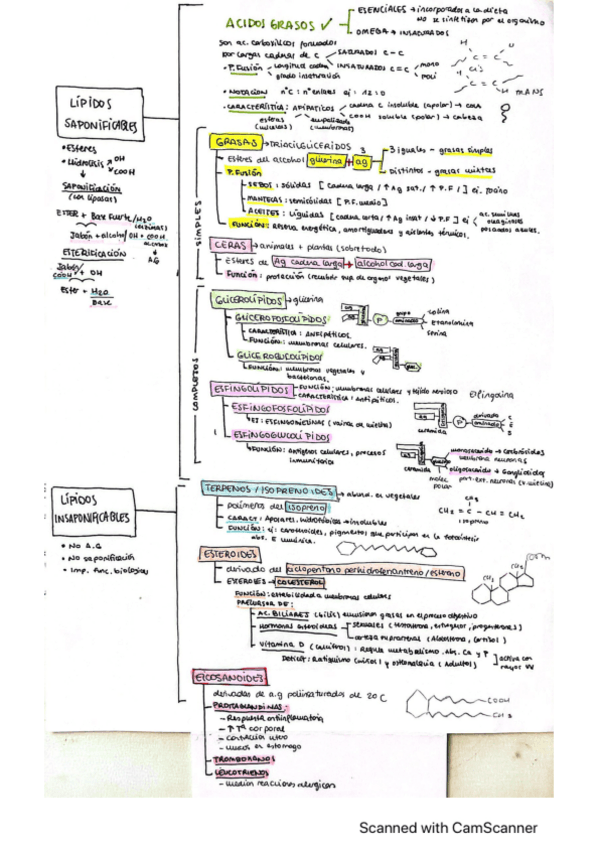 ACIDOS GRASOS ✓
ESENCIALES → incorporados a la dieta
No se sintetizan por el organismo
OMEGA → INSATURADOS
son ac. carboxílicos formados
por largas cadenas de C
SATURADOS C-C
INSATURADOS C=C
MONO
POLI
• P. Fusión
longitud caden
grado insaturación
Cis
TRANS
• NOTACIÓN nºC : nº enlaces ej: 12:0
• CARACTERÍSTICA: ANFIPÁTICOS
cadena C insoluble (apolar) → cola
COOH soluble (polar) → cabeza
LÍPIDOS
SAPONIFICABLES
• Esteres
• Hidrólisis
OH
COOH
SAPONIFICACIÓN
(con lipasas)
ESTER + Base Fuerte/H2O
Jabón + alcohol/OH + COOH
A.G
ESTERIFICACIÓN
Jabón/
COOH + OH
Ester + H2O
Base
SIMPLES
GRASAS → TRIACILGLICERIDOS
3
3 iguales - grasas simples
Distintos - grasas mixtas
Esteres del alcohol glicerina + ag
P. Fusión
SEBOS: sólidas [cadena larga / ↑ Ag sat. / ↑ P.F /]
MANTECAS: semisólidas [P.F. medio]
ACEITES: Líquidas [cadena corta / ↑ Ag insat / ↓ P.F] ej
pescados azules.
FUNCIÓN: reserva energética, amortiguadores y aislantes térmicos.
CERAS → animales + plantas (sobretodo)
Esteres de Ag cadena larga + alcohol cad. larga
Función: protección (recubrir sup de organos vegetales)
COMPLEJOS
GLICEROLÍPIDOS → glicerina
GLICEROFOSFOLÍPIDOS
CARACTERÍSTICA: ANFIPÁTICOS.
FUNCIÓN: membranas celulares.
AG
P
grupo
aminoalcohol
colina
etanolamina
serina
GLICEROGLUCOLÍPIDOS
FUNCIÓN: membranas vegetales y
bacterianas.
ESFINGOLÍPIDOS
FUNCIÓN: membranas celulares y tejido nervioso
CARACTERÍSTICA: antipáticos.
Esfingosina
ESFINGOFOSFOLÍPIDOS
EJ: ESFINGOMIELINAS (vaina de mielina)
AG
ceramida
P
ESFINGOGLUCOLÍPIDOS
FUNCIÓN: antígenos celulares, procesos
inmunitarios
ceramida
molec
polar
monosacarido → cerebrósidos
membrana neuronas
oligosacarido → Gangliósidos
LÍPIDOS
INSAPONIFICABLES
• NO A.G
• No saponificación
• Imp. func. biológicas
TERPENOS / ISOPRENOIDES → abund. en vegetales
polímeros del isopreno
CARACT: Apolares, hidrofóbicos → insolubles
FUNCIÓN: ej: carotenoides, pigmentos que participan en la fotosíntesis
abs. E lumínica.
CH3
CH2 = C - CH = CH2
isopreno
ESTEROIDES
derivado del ciclopentano perhidrofenantreno / esterano
ESTEROLES → COLESTEROL
FUNCIÓN: estabilidad a membranas celulares
PRECURSOR DE:
AC. BILIARES (bilis) emulsionan grasas en el proceso digestivo
Hormonas esteroideas
sexuales (testosterona, estrogenos, progesterona)
corteza suprarrenal (Aldosterona, cortisol)
VITAMINA D (calcifrol): Regula metabolismo. Abs. Ca y P
Deficit: Raquitismo (niños) y osteomalacia (Adultos)
activa con
rayos UV
CH3
CH3
EICOSANOIDES
derivadas de a.g poliinsaturados de 20 C
PROSTAGLANDINAS
- Respuesta antiinflamatoria
- ↑ Tª corporal
- Contracción utero
- Mucus en estomago
TROMBOXANOS
LEUCOTRIENOS
- median reacciones alergicas
COOH
CH3
Scanned with CamScanner